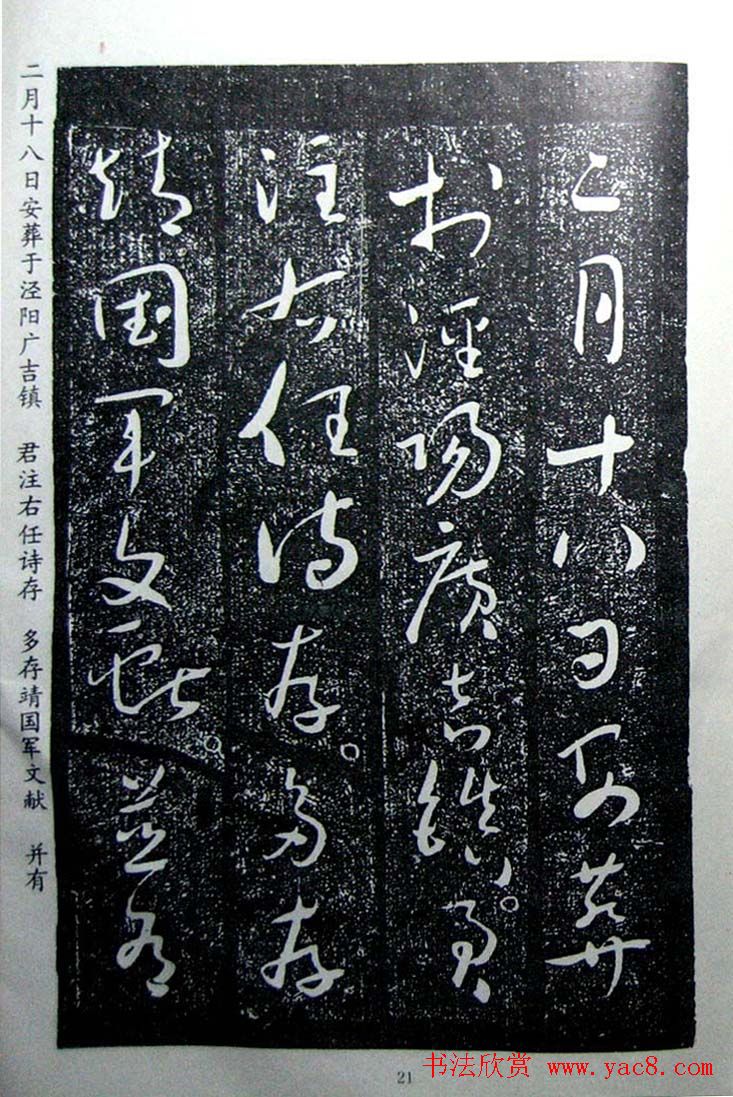 二月十八日安葬
於涇陽廣吉鎮。君
注右任詩存。多存
靖國軍文獻。並有
二月十八日安葬于泾阳广吉镇 君注右任诗存 多存靖国军文献 并有
21
书法欣赏 www.yac8.com